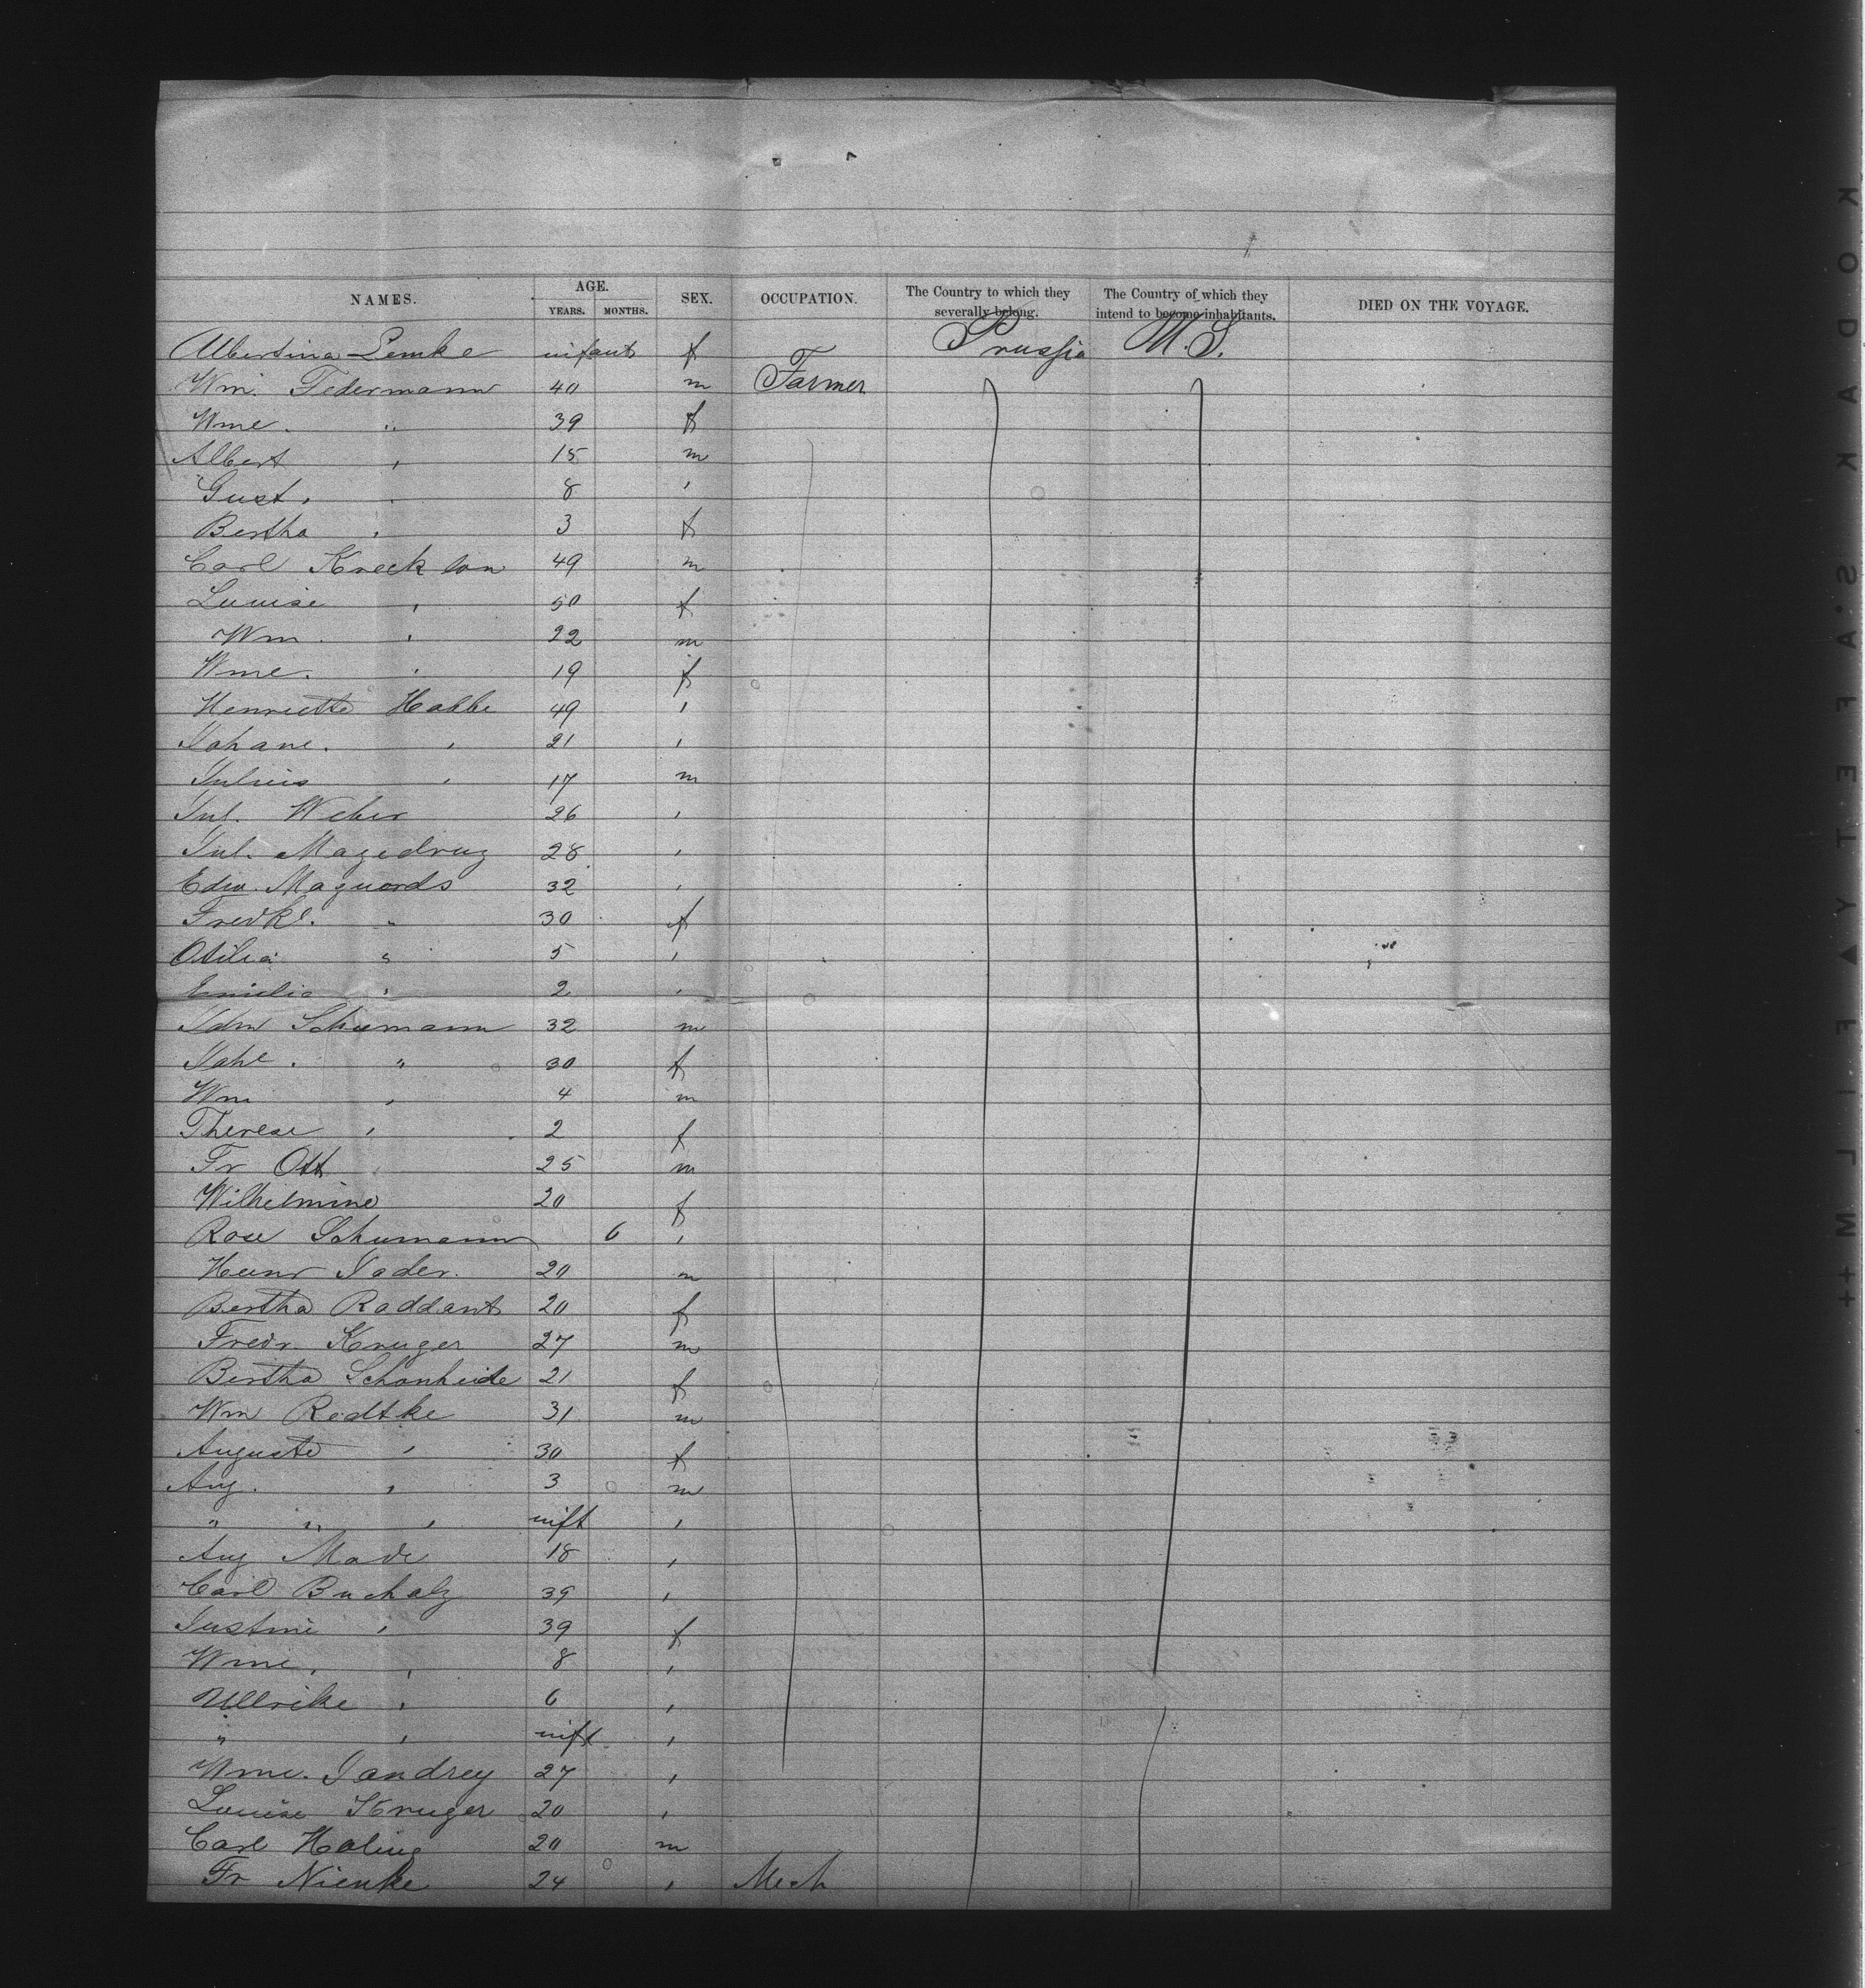 NAMES. AGE. YEARS. MONTHS. SEX. OCCUPATION. The Country to which they severally belong. The Country of which they intend to become inhabitants. DIED ON THE VOYAGE.
Albertina Lemke infant f Prussia U.S.
Wm. Federmann 40 m Farmer
Wme. " 39 f
Albert " 15 m
Gust. " 8 "
Bertha " 3 f
Carl Krecklon 49 m
Louise " 50 f
Wm. " 22 m
Wme. " 19 f
Henriette Habbe 49 "
Johane. " 21 "
Julius " 17 m
Jul. Weber 26 "
Jul. Magedrug 28 "
Edw. Maguords 32 "
Fredke. " 30 f
Otilia " 5 "
Emilie " 2 "
Schumann 32 m
Johe. " 30 f
Wm " 4 m
Therese " 2 f
Fr Ott 25 m
Wilhelmine 20 f
Rose Schumann 6 "
Heinr Jader. 20 m
Bertha Raddant 20 f
Fredr. Kruger 27 m
Bertha Schonheide 21 f
Wm Redtke 31 m
Auguste " 30 f
Aug. " 3 m
" " " inft "
Aug Made 18 "
Carl Bucholz 39 "
Justine " 39 f
Wme. " 8 "
Ullrike " 6 "
" " inft. "
Wme. Jandrey 27 "
Louise Kruger 20 "
Carl 20 m
Fr Nienke 24 " Mech
KODAK S.AFETY▲FILM++